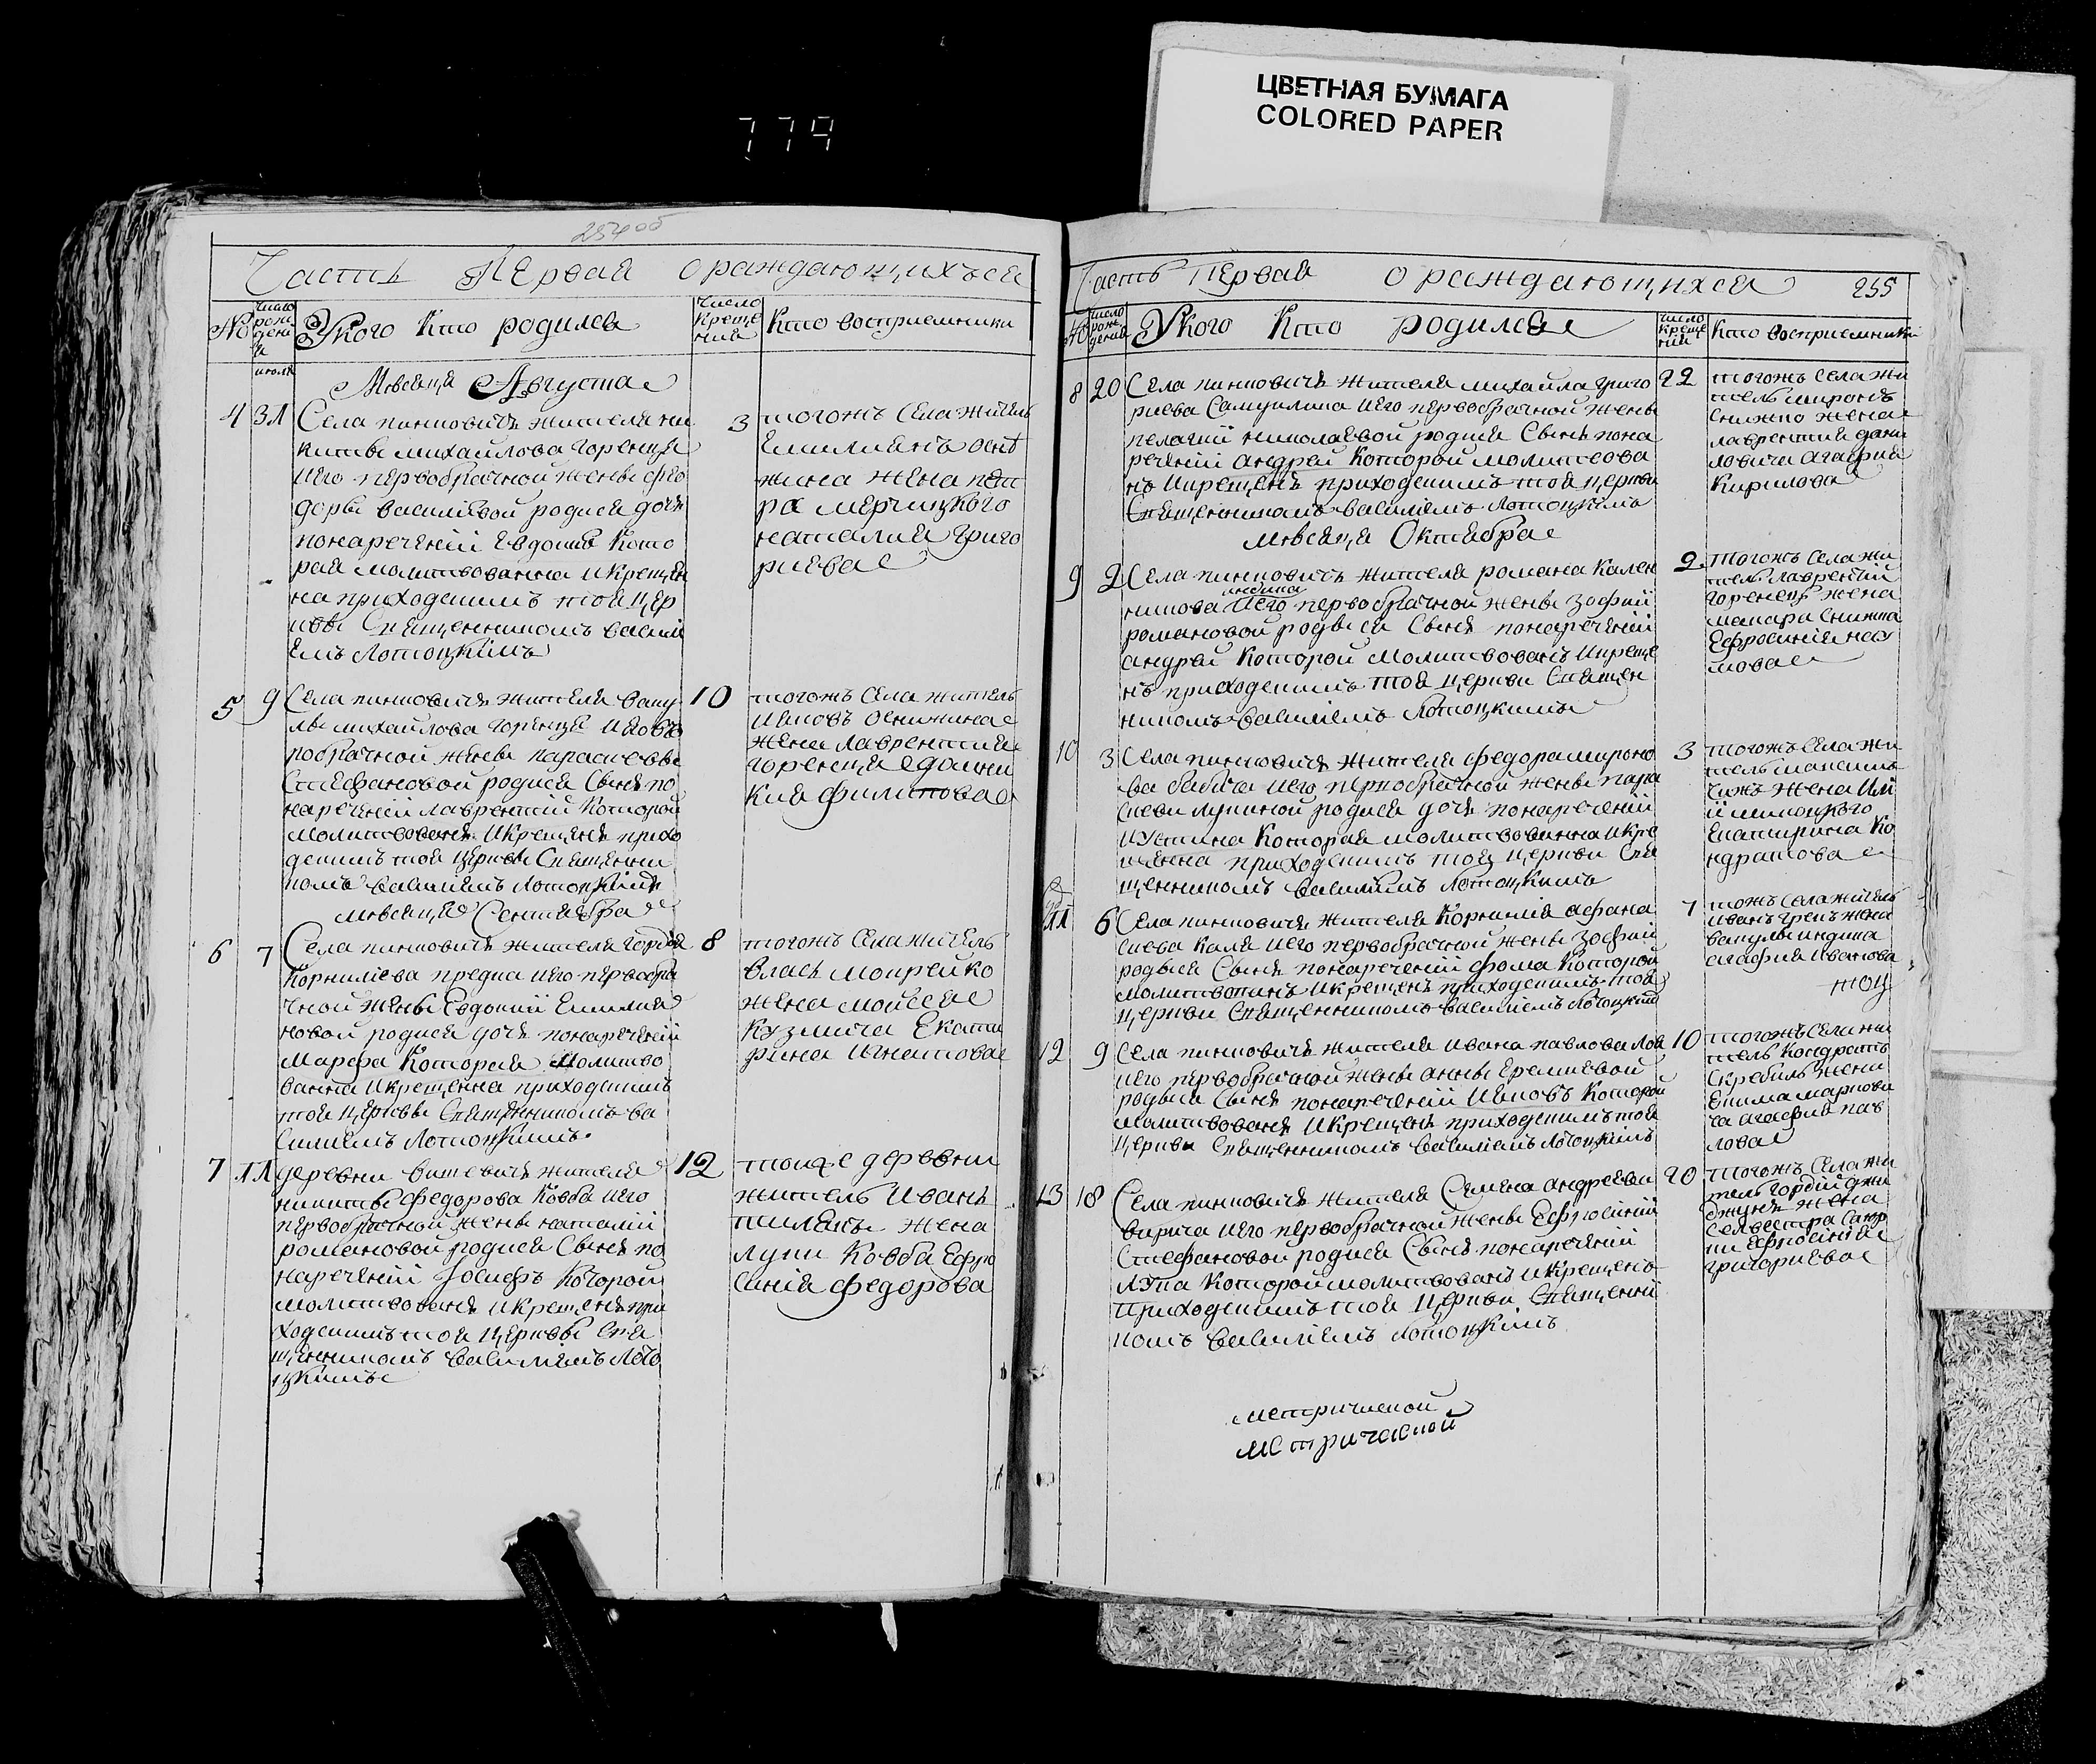 ЦВЕТНАЯ БУМАГА
COLORED PAPER
779
254об
Часть Первая о раждающихъся
№
число рож дени я
Укого Кто родился
Число Креще ния
Кто восприемники
июля
Месяца Августа
4 31 Села пинковичъ жителя ни
киты михайлова горенца
иего первобрачной жены фео
доры василіевой родися дочъ
понареченій Евдокия Кото
рая молитвованна икрещен
на приходскимъ тоя цер
кве Священникомъ васили
емъ Лотоцкимъ
3 тогожъ села житель
Емилианъ
жена пет
ра мерлицкого
наталия григо
риева
5 9 Села пинковичъ жителя ваку
лы михайлова горенца
робрачной жены парасковьи
Стефановой родися Сынъ по
нареченій лаврентій Которой
молитвованъ икрещенъ прихо
дскимъ тоя церкви Священни
комъ василиемъ Лотоцкимъ
10 тогожъ села житель
жена лаврентия
горенца едоки
кия филипова
месяца Сентября
6 7 Села пинковичъ жителя гордея
Корнилієва предка иего первобра
чной жены Евдокиі Емилия
новой родися дочъ понареченій
Марфа Которая молитво
ванна икрещенна приходскимъ
тоя церквы Священникомъ ва
силиемъ Лотоцкимъ
8 тогожъ села житель
власъ мокрейко
жена мойсея
Кузмича Екати
рина игнатова
7 11 деревни вишевичъ жителя
никиты федорова Ковба иего
первобрачной жены наталиі
романовой родися Сынъ по
нареченій Іосифъ Которой
молитвованъ икрещенъ при
ходскимъ тоя церквы Свя
щенникомъ василиемъ Лото
цкимъ
12 тояже деревни
житель Иванъ
жена
луки Ковба Ефро
синія федорова
Часть Первая о раждающихся 255
№
число рож дения
Укого Кто родился
число Креще ния
Кто восприемники
8 20 Села пинковичъ жителя михайла григо
риева Самуилика иего первобрачной жены
пелагиі николаевой родися Сынъ пона
реченій андрей Которой молитвова
нъ икрещенъ приходскимъ тоя церкви
Священникомъ василиемъ Лотоцкимъ
22 тогожъ села жи
тель миронъ
жена
лаврентия дани
ловича агафия
Кирилова
месяца Октября
9 2 Села пинковичъ жителя романа Кален
никова индика иего первобрачной жены зофиі
романовой родыся Сынъ понареченій
андрей Которой молитвованъ икреще
нъ приходскимъ тоя церкви Священ
никомъ василиемъ Лотоцкимъ
2 тогожъ села жи
тель лаврентій
горенецъ жена
макара
Ефросиния нау
мова
10 3 Села пинковичъ жителя федора мироно
ва бабича иего первобрачной жены пара
скеви лукиной родися дочъ понареченій
иустина Которая молитвованна икре
щенна приходскимъ тоя церкви Свя
щенникомъ василиемъ Лотоцкимъ
3 тогожъ села жи
тель максимъ
жена
Екатирина Ко
ндратова
11 6 Села пинковичъ жителя Корнилія афана
сиева Каля иего первобрачной жены зофиі
родыся Сынъ понареченій фома Которой
молитвованъ икрещенъ приходскимъ тоя
церкви Священникомъ василиемъ Лотоцкимъ
7 тожъ села житель
иванъ жена
вакулы индика
агафия иванова
тоц
12 9 Села пинковичъ жителя ивана павлова
иего первобрачной жены анны
родыся Сынъ понареченій Которой
молитвованъ икрещенъ приходскимъ тоя
церкви Священникомъ василиемъ Лотоцкимъ
10 тогожъ села жи
тель Кондратъ
жена
екима маркови
ча агафия пав
лова
13 18 Села пинковичъ жителя Семена андреева
иего первобрачной жены Ефросиніи
Стефановой родися Сынъ понареченій
лука Которой молитвованъ икрещенъ
приходскимъ тоя церкви Священни
комъ василиемъ Лотоцкимъ
20 тогожъ села жи
тель гордій
жена
Селвестра
Ефросиния
григориева
метрической
метрической